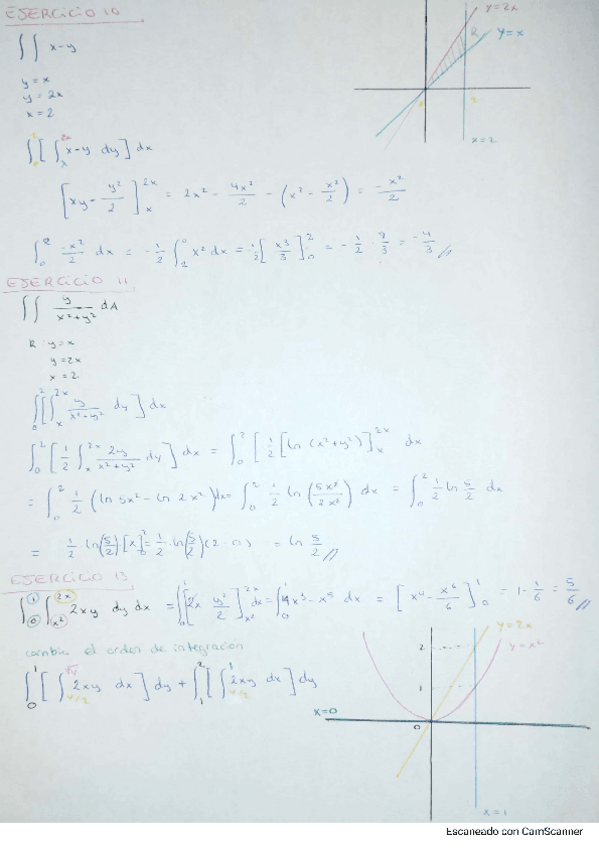 EJERCICIO 10
∫∫ x-y
y = x
y = 2x
x = 2
∫₀² [ ∫ₓ²ˣ x-y dy ] dx
[ xy - y²/2 ]ₓ²ˣ = 2x² - 4x²/2 - (x² - x²/2) = -x²/2
∫₀² -x²/2 dx = -1/2 ∫ x² dx = -1/2 [ x³/3 ]₀² = -1/2 · 8/3 = -4/3 //
y=2x
y=x
R
2
x=2
EJERCICIO 11
∫∫ y/(x²+y²) dA
R y=x
y=2x
x=2
∫₀² [ ∫ₓ²ˣ y/(x²+y²) dy ] dx
∫₀² [ 1/2 ∫ₓ²ˣ 2y/(x²+y²) dy ] dx = ∫₀² [ 1/2 [ ln (x²+y²) ]ₓ²ˣ dx
= ∫₀² 1/2 ( ln 5x² - ln 2x² ) dx = ∫₀² 1/2 ln (5x²/2x²) dx = ∫₀² 1/2 ln 5/2 dx
= 1/2 ln(5/2) [x]₀² = 1/2 ln(5/2) (2-0) = ln 5/2 //
EJERCICIO 13
∫₀¹ ∫ₓ²²ˣ 2xy dy dx = ∫₀¹ [ 2x y²/2 ]ₓ²²ˣ dx = ∫₀¹ 4x³ - x⁵ dx = [ x⁴ - x⁶/6 ]₀¹ = 1 - 1/6 = 5/6 //
cambia el orden de integración
∫₀¹ [ ∫ 2xy dx ] dy + ∫₁² [ ∫ 2xy dx ] dy
y=2x
y=x²
2
1
x=0
0
x=1
Escaneado con CamScanner